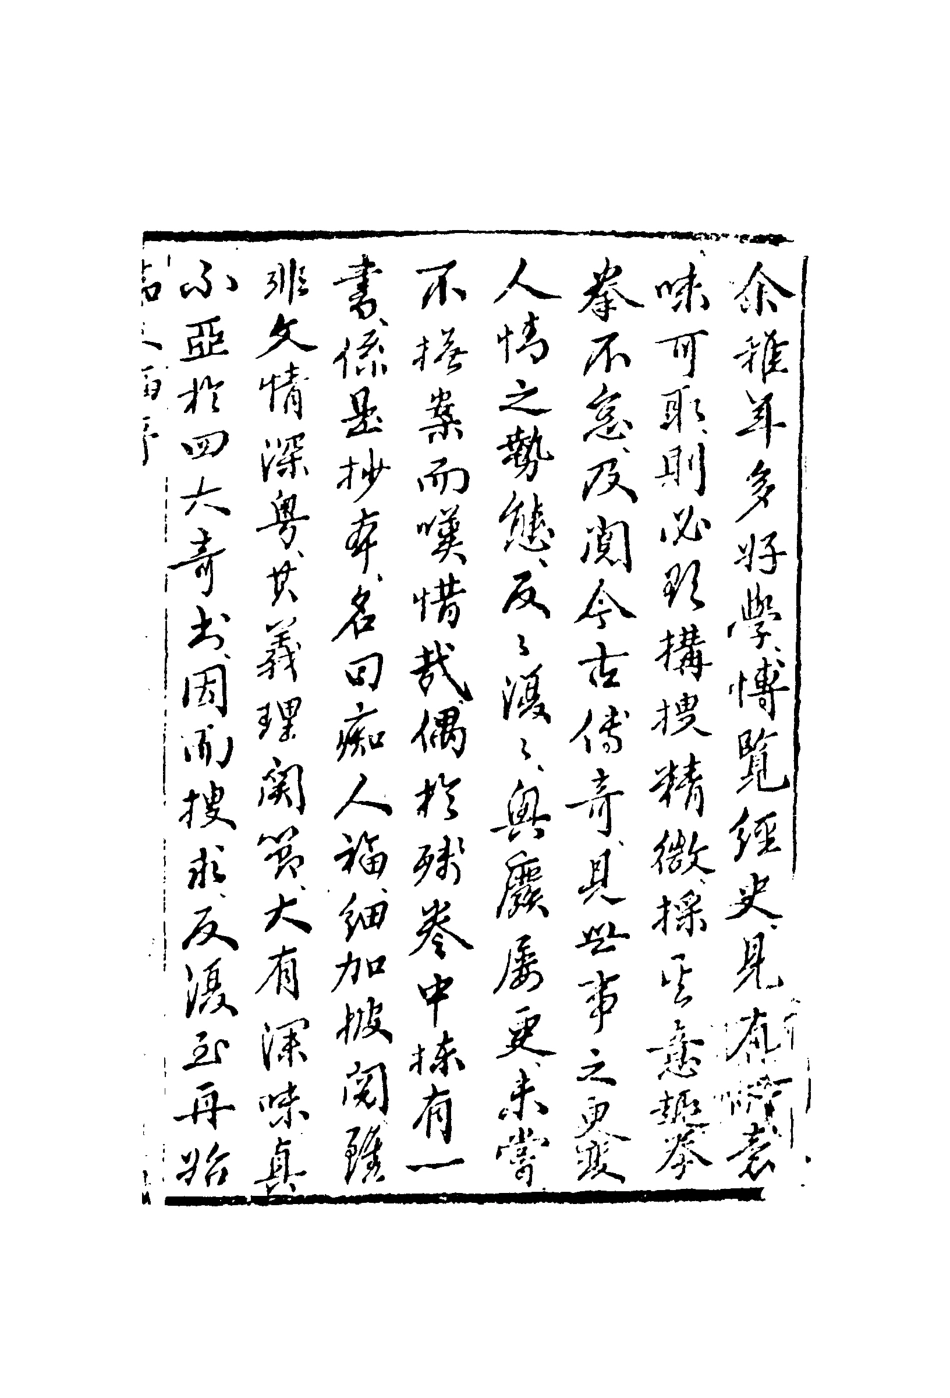 余稚年多好學博覽經史見有意
味可取則必欲搆搜精微探其意趣拳
拳不怠及閱今古傳奇見世事之更變
人情之勢態反〻復〻興廢屢更未嘗
不撫案而嘆惜哉偶於殘卷中揀有一
書係是抄本名曰痴人福細加披閱雖
非文情深奧其義理関節大有深味真
不亞於四大奇書因而搜求反復至再始
痴人福序